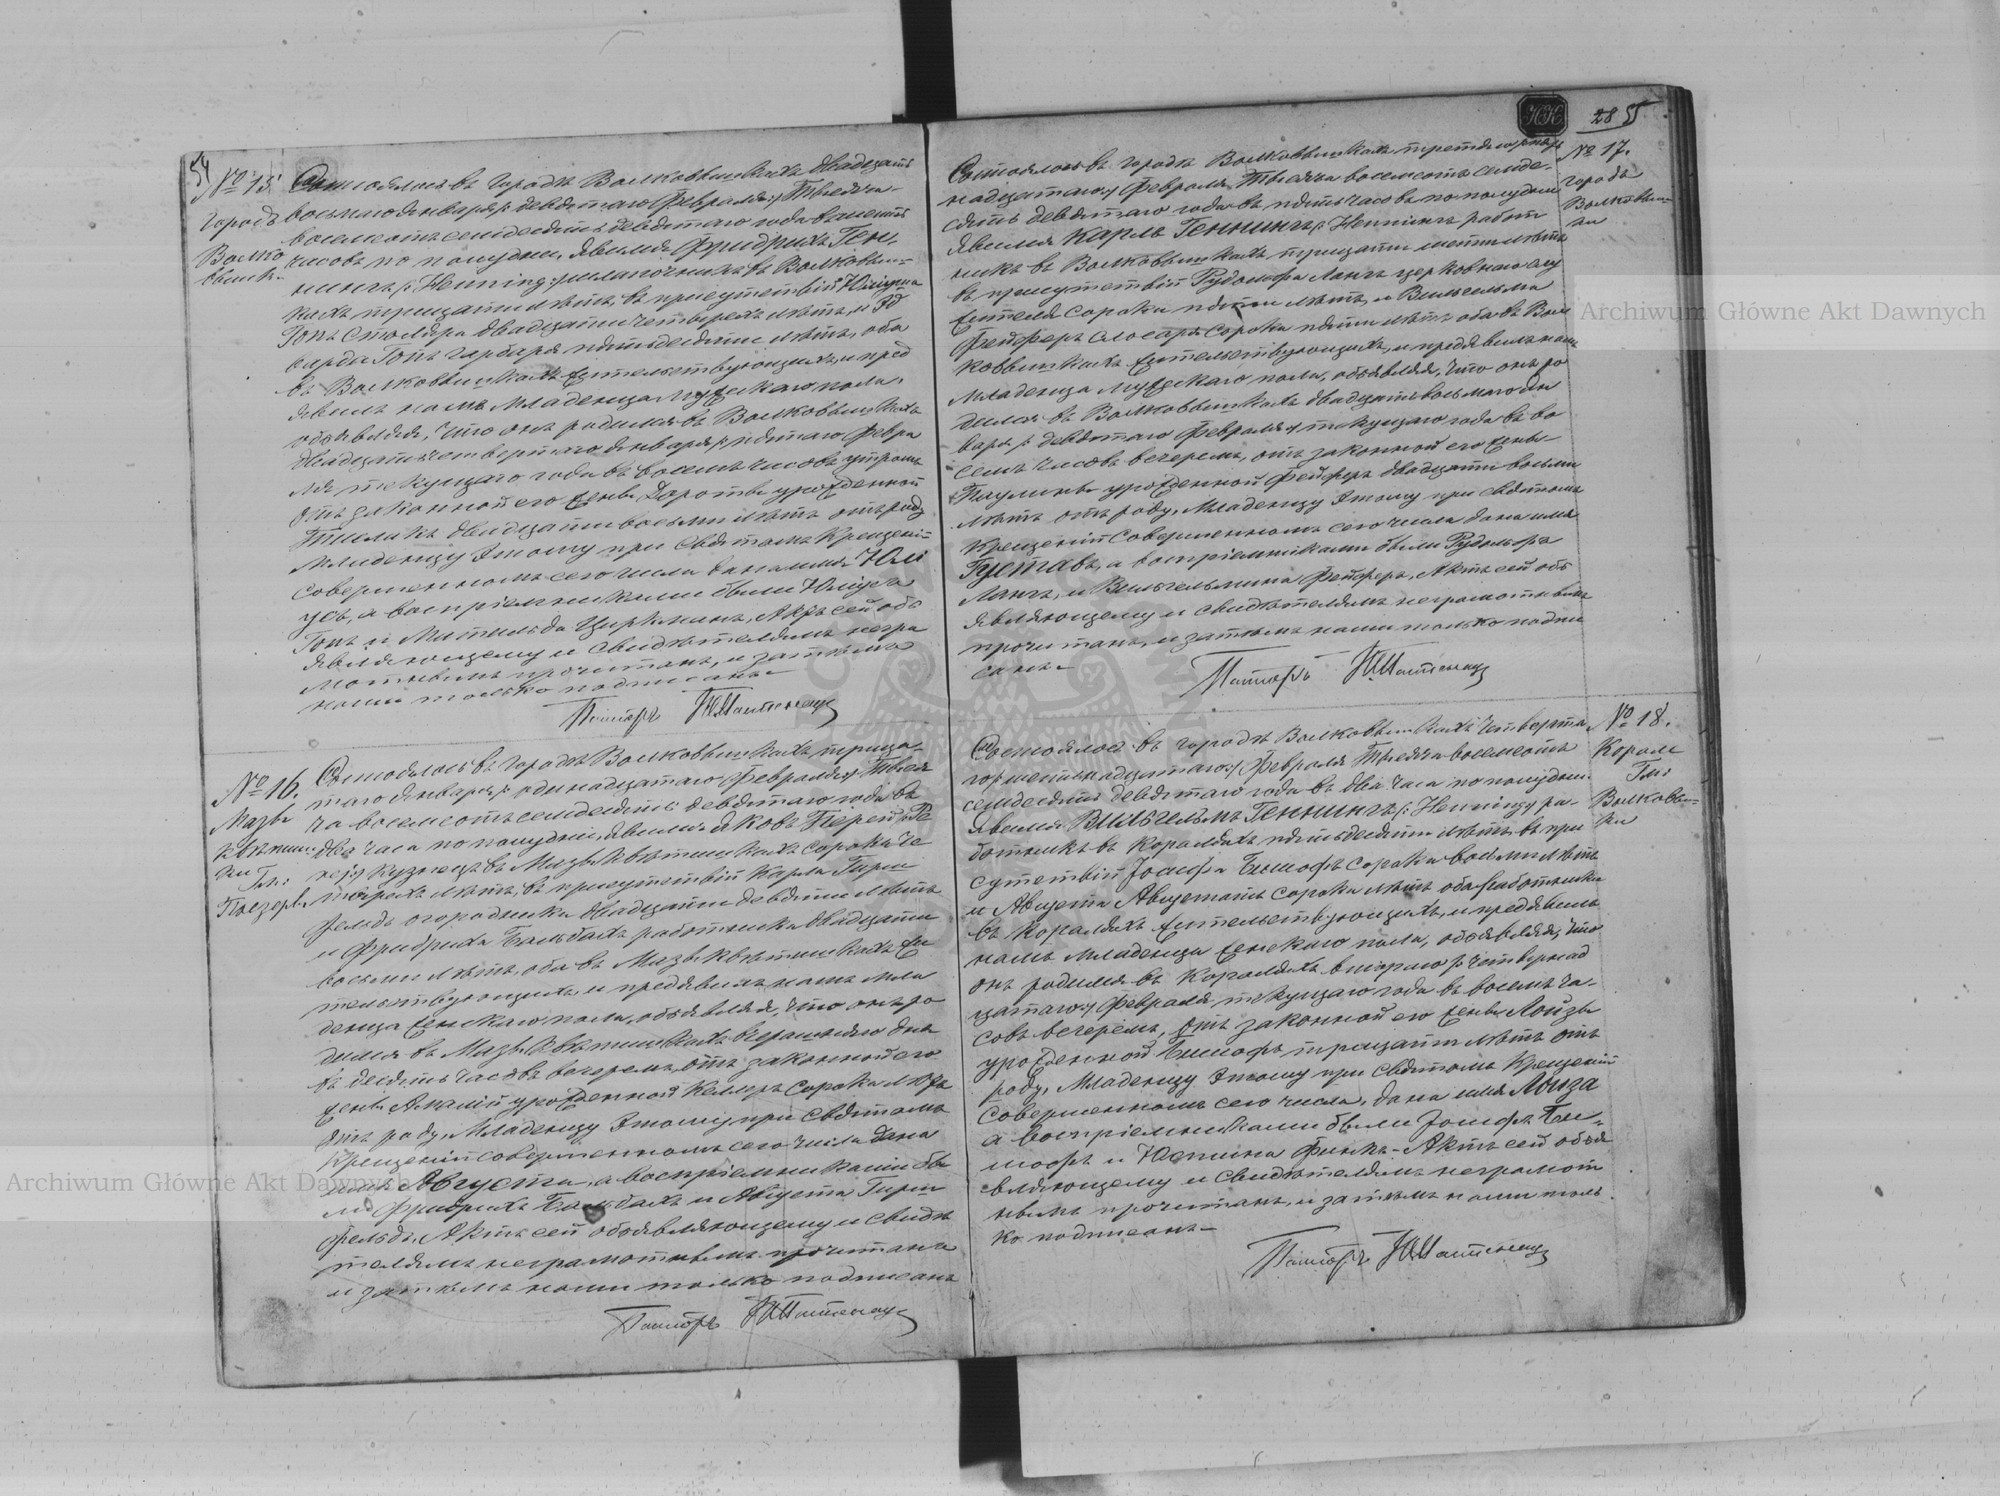 54
№ 15.
городъ
Волко
вышк.
Состоялось въ городѣ Волковышкахъ двадцать
восьмаго Января /: девятаго Февраля :/ Тысяча
восемсотъ семдесятъ девятаго года въ шесть
часовъ по полудни, явился Фридрихъ Ген-
нингъ /: Henning :/ шапочникъ въ Волковыш-
кахъ тридцати лѣтъ, въ присутствіи Юлiуша
Гопъ столяра двадцати четырехъ лѣтъ, и Эд
варда Гопъ гарбаря пятьдесяти лѣтъ, оба
въ Волковышкахъ жительствующихъ, и пред
явилъ намъ младенца мужескаго пола,
объявляя, что онъ родился въ Волковышкахъ
двадцать четвертаго Января /: пятаго Февра
ля текущаго года въ восемь часовъ утромъ
отъ законной его жены Дороты урожденной
двадцати восьми лѣтъ отъ роду
Младенцу этому при Святомъ Крещеніи
совершенномъ сего числа дано имя Юлі
усъ, а воспріемниками были Юліусъ
Гопъ и Матильда Циркминъ, Актъ сей объ
являющему и свидѣтелямъ негра
мотнымъ прочитанъ, и затѣмъ
нами только подписанъ
Пасторъ
№ 16.
Мазы
Гми:
Поезеры
Состоялось въ городѣ Волковышкахъ трица-
таго Января /: одинадцатаго Февраля :/ Тыся
ча восемсотъ семдесятъ девятаго года въ
два часа по полудни, явился Яковъ
кузнецъ въ сорока че
тырехъ лѣтъ, въ присутствіи Карла Гирш
фельдъ огородника двадцати девяти лѣтъ
и Фридриха Бальбахъ работника двадцати
восьми лѣтъ, оба въ жи
тельствующихъ, и предявилъ намъ мла
денца женскаго пола, объявляя, что онъ ро
дился въ вчерашняго дня
въ десять часовъ вечеромъ, отъ законной его
жены Амаліи урожденной Келлеръ сорока лѣтъ
отъ роду, Младенцу этому при Святомъ
Крещеніи совершенномъ сего числа дано
имя Августа, а воспріемниками бы
ли Фридрихъ Бальбахъ и Августа Гирш
фельдъ, Актъ сей объявляющему и свидѣ
телямъ неграмотнымъ прочитанъ
и затѣмъ нами только подписанъ
Пасторъ
НК
28 55
№ 17.
городъ
Волковыш-
ки
Состоялось въ городѣ Волковышкахъ третьяго /: пят
надцатаго :/ Февраля Тысяча восемсотъ семде-
сятъ девятаго года въ пять часовъ по полудни
явился Карлъ Геннингъ /: Henning :/ работ
никъ въ Волковышкахъ, тридцати шести лѣтъ
въ присутствіи Рудольфа Лангъ церковнаго слу
жителя сорока пяти лѣтъ, и Вильгельма
Фейферъ слесаря сорока пяти лѣтъ оба въ Вол
ковышкахъ жительствующихъ, и предявилъ намъ
младенца мужескаго пола, объявляя, что онъ ро
дился въ Волковышкахъ двадцать восьмого Ян
варя /: девятаго Февраля :/ текущаго года въ во
семь часовъ вечеромъ, отъ законной его жены
Паулины урожденной Фейферъ двадцати восьми
лѣтъ отъ роду, Младенцу этому при Святомъ
Крещеніи совершенномъ сего числа дано имя
Густавъ, а воспріемниками были Рудольфъ
Лангъ, и Вильгельмина Фейферъ, Актъ сей объ
являющему и свидѣтелямъ неграмотнымъ
прочитанъ, и затѣмъ нами только подпи
санъ
Пасторъ
№ 18.
Корале
Гми:
Волковыш-
ки
Состоялось въ городѣ Волковышкахъ четверта
го /: шестьнадцатаго :/ Февраля Тысяча восемсотъ
семдесятъ девятаго года въ два часа по полудни
явился Вильгельмъ Геннингъ /: Henning :/ ра-
ботникъ въ Кораляхъ пятьдесяти лѣтъ въ при
сутствіи Іосифа Бишофъ сорока восьми лѣтъ
и Августа Августатъ сорока лѣтъ оба работники
въ Коралахъ жительствующихъ, и предявилъ
намъ младенца женскаго пола, объявляя, что
онъ родился въ Кораляхъ втораго /: четвернад
цатаго :/ Февраля текущаго года въ восемь ча-
совъ вечеромъ, отъ законной его жены Лойзы
урожденной Бишофъ тридцати лѣтъ отъ
роду, Младенцу этому при Святомъ Крещеніи
совершенномъ сего числа, дано имя Лоиза
а воспріемниками были Іосифъ Би-
шофъ и Юстина Финкъ - Актъ сей объя
вляющему и свидѣтелямъ неграмот
нымъ прочитанъ, и затѣмъ нами толь
ко подписанъ
Пасторъ
Archiwum Główne Akt Dawnych
Archiwum Główne Akt Dawnych